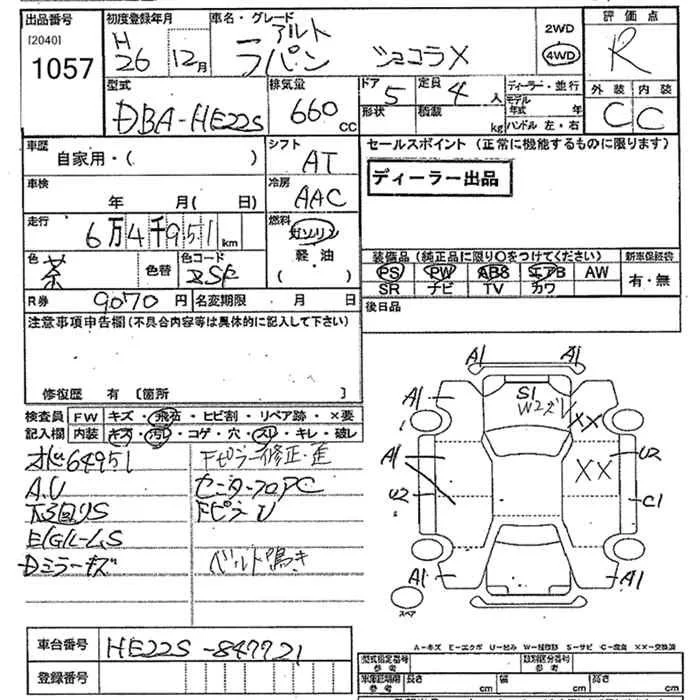 出品番号 初度登録年月 車名・グレード 2WD 評価点
[2040] H アルト 4WD R
1057 26 12月 ラパン ショコラX
外装 内装
C C
型式 排気量 ドア 定員 ディーラー・並行
DBA-HE22S 660cc 5 4人 モデル年式 年
形状 積載 kg ハンドル 左・右
車歴 シフト セールスポイント(正常に機能するものに限ります)
自家用・( ) AT ディーラー出品
車検 冷房
年 月( 日) AAC
走行 燃料
6万4千951km ガソリン
軽油
( )
色 色替 色コード 装備品(純正品に限り○をつけてください) 新車保証書
茶 ZSF PS PW ABS エアB AW 有・無
SR ナビ TV カワ
R券 9070円 名変期限 月 日 後日品
注意事項申告欄(不具合内容等は具体的に記入して下さい)
修復歴 有 〔箇所 〕
検査員 FW キズ・飛石・ヒビ割・リペア跡・×要
記入欄 内装 キズ・汚レ・コゲ・穴・スレ・キレ・破レ
64951 Fピラー修正・歪
A.U センターフロアPC
下回りS FピラーU
E/Gルーム.S
Dミラーキズ ベルト鳴き
A1 A1
A1 S1 W2
XX
A1 U2
XX
U2 C1
A1 A1
スペア
A-キズ E-エクボ U-凹み W-補修跡 S-サビ C-腐食 XX-交換済
車台番号 HE22S-847721
登録番号
型式指定番号 参考 類別区分番号 参考
車庫証明用 参考 長さ cm 幅 cm 高さ cm